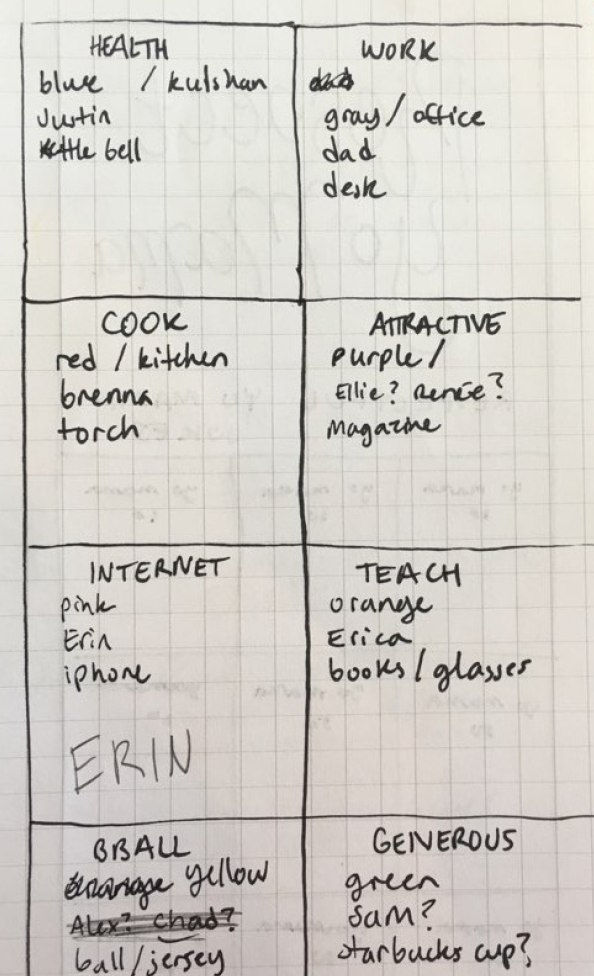 HEALTH
blue / kulshan
Justin
kettle bell
WORK
gray / office
dad
desk
COOK
red / kitchen
brenna
torch
ATTRACTIVE
purple /
Ellie? Renée?
magazine
INTERNET
pink
Erin
iphone
ERIN
TEACH
orange
Erica
books / glasses
BBALL
orange yellow
Alex? Chad?
ball / jersey
GENEROUS
green
Sam?
starbucks cup?